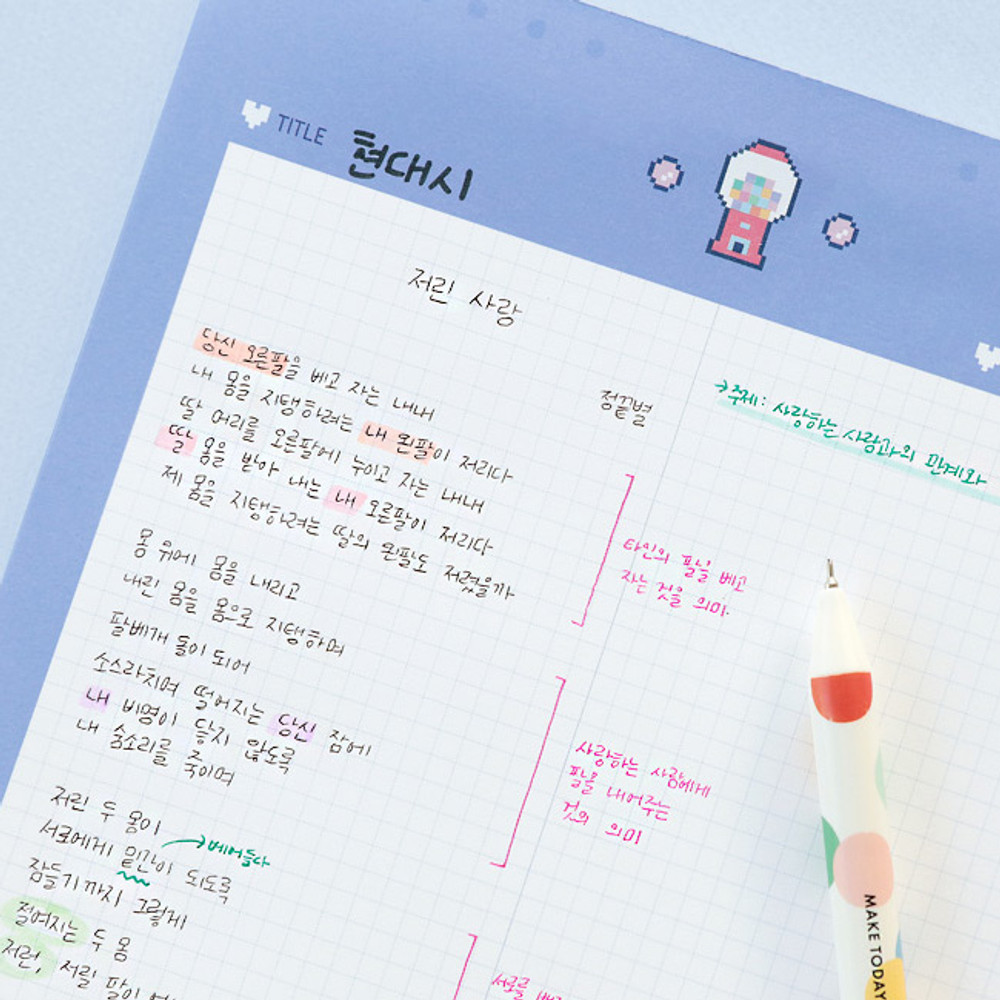 TITLE 현대시
저린 사랑
정끝별
당신 오른팔을 베고 자는 내내
내 몸을 지탱하려는 내 왼팔이 저리다
딸 머리를 오른팔에 누이고 자는 내내
딸 몸을 받아 내는 내 오른팔이 저리다
제 몸을 지탱하려는 딸의 왼팔도 저렸을까
몸 위에 몸을 내리고
내린 몸을 몸으로 지탱하며
팔베개 돌이 되어
소스라치며 떨어지는 당신 잠에
내 비명이 닿지 않도록
내 숨소리를 죽이며
저린 두 몸이
서로에게 밑간이 되도록
베어들다
잠들기까지 그렇게
절여지는 두 몸
저런, 저릴 팔이
→주제: 사랑하는 사람과의 관계와
타인의 팔을 베고
자는 것을 의미.
사랑하는 사람에게
팔을 내어주는
것의 의미
서로를
MAKE TODAY